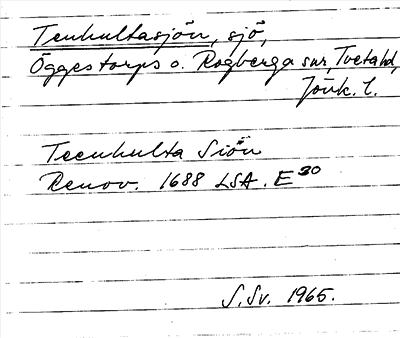 Tenhultasjön, sjö,
Öggestorps o. Rogberga snr, Tveta hd,
Jönk. l.
Teenhulta Siön
Renov. 1688 LSA. E 30
S.Sv. 1965.